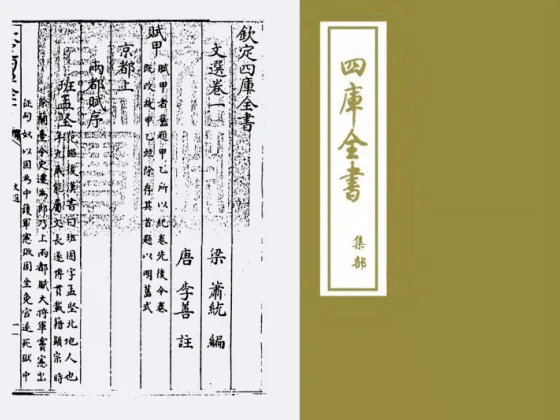 欽定四庫全書
文選卷一
梁 蕭統 編
唐 李善 註
賦甲
賦甲者舊題甲乙所以紀卷先後今卷
既改故甲乙並除存其首題以明舊式
京都上
兩都賦序
班孟堅
范曄後漢書曰班固字孟堅北地人也
年九歲能屬文長遂博貫載籍顯宗時
除蘭臺令史遷為郎乃上兩都賦大將軍竇憲出
征匈奴以固為中護軍憲敗固坐免官遂死獄中
文選
四庫全書
集部